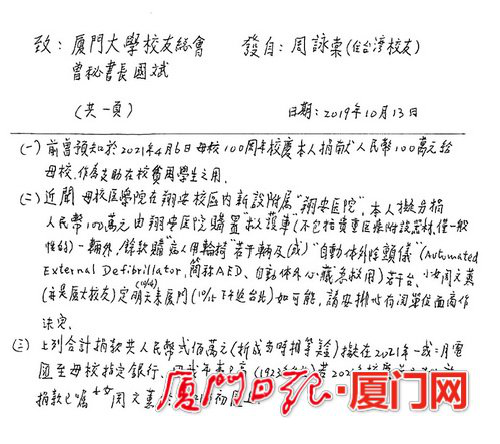 致：廈門大學校友總會 發自：周詠棠(住台湾校友)
曾秘書長國斌
(共一頁) 日期：2019年10月13日
(一)前曾預知於2021年4月6日母校100周年校慶本人捐献人民幣100萬元給
母校，作為支助在校貧困學生之用.
(二)近聞 母校医學院在翔安校區内新設附属"翔安医院"，本人擬另捐
人民幣100萬元由翔安医院購置"救護車(不包括貴重医療附設器材，僅一般
性的)一輛外，餘款購"病人用輪椅"若干輛及(或)"自動体外除顫儀"(Automated
External Defibrillator，簡称AED、自動体外心臟急救用)若干台，小女周文薰
(亦是廈大校友)定明天來廈門(10/15下午返台北)如可能，請安排与有関單位面商作
(10/14)
決定.
(三)上列合計捐款共人民幣弍佰萬元(折成当時相等美金)擬在2021年一或二月電
匯至母校指定銀行、
捐款已囑小女周文薰
厦门日报·厦门网